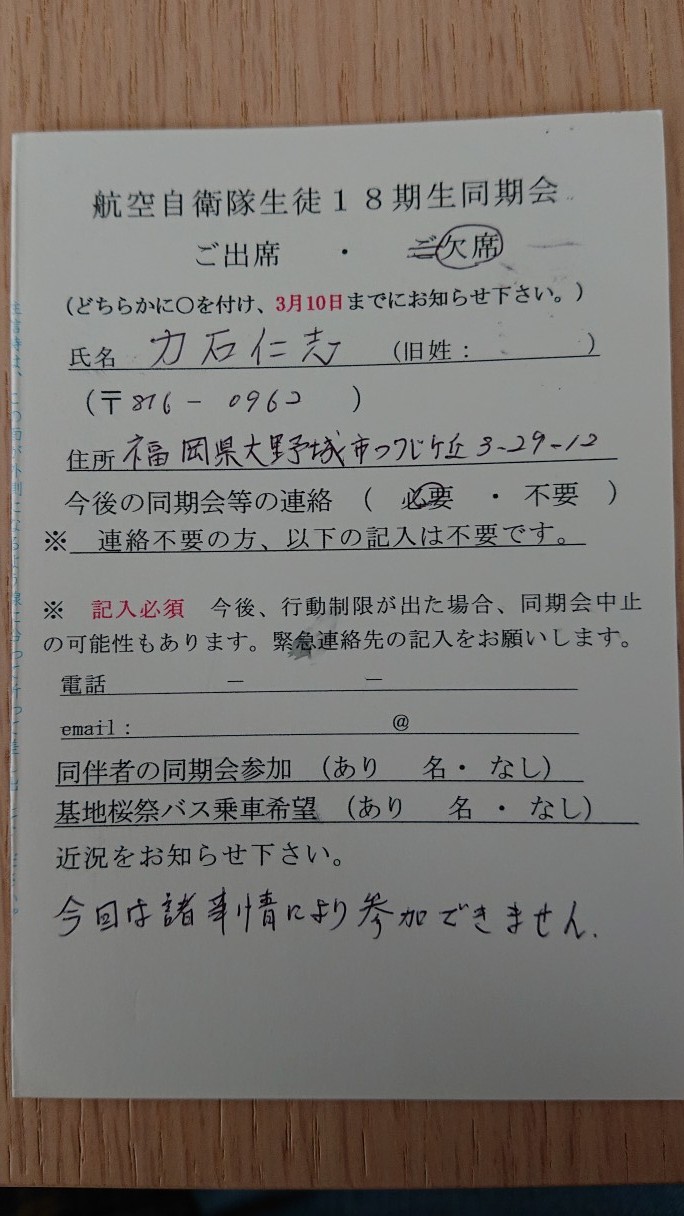 航空自衛隊生徒18期生同期会
ご出席 ・ ご欠席
(どちらかに〇を付け、3月10日までにお知らせ下さい。)
氏名 力石仁志 (旧姓: )
(〒816-0962 )
住所 福岡県大野城市つつじケ丘3-29-12
今後の同期会等の連絡 ( 必要 ・ 不要 )
※ 連絡不要の方、以下の記入は不要です。
※ 記入必須 今後、行動制限が出た場合、同期会中止
の可能性もあります。緊急連絡先の記入をお願いします。
電話 - -
email: @
同伴者の同期会参加 (あり 名・ なし)
基地桜祭バス乗車希望 (あり 名 ・ なし)
近況をお知らせ下さい。
今回は諸事情により参加できません.